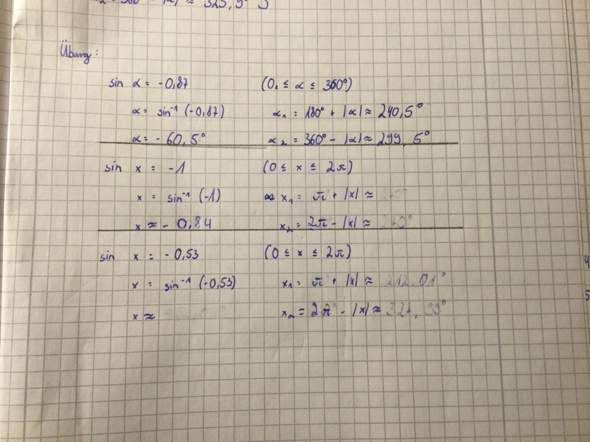 ≈ 325,9°
Übung:
sin α = -0,87 (0 ≤ α ≤ 360°)
α = sin⁻¹ (-0,87) α₁ = 180° + |α| ≈ 240,5°
α = -60,5° α₂ = 360° - |α| ≈ 299,5°
sin x = -1 (0 ≤ x ≤ 2π)
x = sin⁻¹ (-1) x₁ = π + |x| ≈
x ≈ -0,84 x₂ = 2π - |x| ≈
sin x = -0,53 (0 ≤ x ≤ 2π)
x = sin⁻¹ (-0,53) x₁ = π + |x| ≈ 212,01°
x ≈ x₂ = 2π - |x| ≈ 327,99°